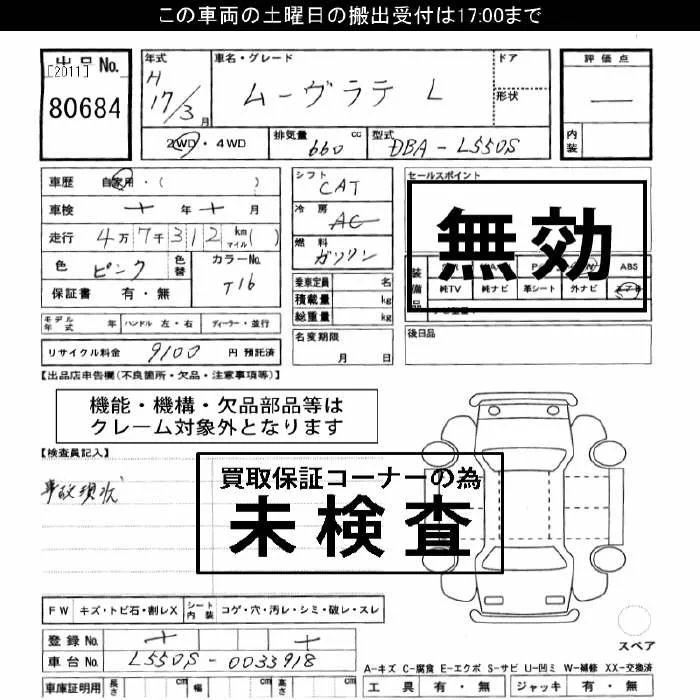 この車両の土曜日の搬出受付は17:00まで
出品No.
[2011]
80684
年式
H
17/3月
車名・グレード
ムーヴラテ L
ドア
形状
評価点
—
内装
2WD・4WD
排気量
660 cc
型式
DBA - L550S
車歴 自家用・( )
車検 年 月
走行 4万7千312 km マイル( )
色 ピンク
色替
カラーNo.
T16
保証書 有・無
シフト
CAT
冷房
AC
燃料
ガソリン
乗車定員 名
積載量 kg
総重量 kg
セールスポイント
無効
装備品
ABS
純TV 純ナビ 革シート 外ナビ
モデル年式 年 ハンドル 左・右 ディーラー・並行
名変期限
月 日
後日品
リサイクル料金 9100 円 預託済
【出品店申告欄(不良箇所・欠品・注意事項等)】
機能・機構・欠品部品等は
クレーム対象外となります
【検査員記入】
事故現状
買取保証コーナーの為
未検査
FW キズ・トビ石・割レX シート内装 コゲ・穴・汚レ・シミ・破レ・スレ
登録No.
車台No. L550S - 0033918
車庫証明用 長さ cm 幅 cm 高さ cm
スペア
A-キズ C-腐食 E-エクボ S-サビ U-凹ミ W-補修 XX-交換済
工具 有・無 ジャッキ 有・無